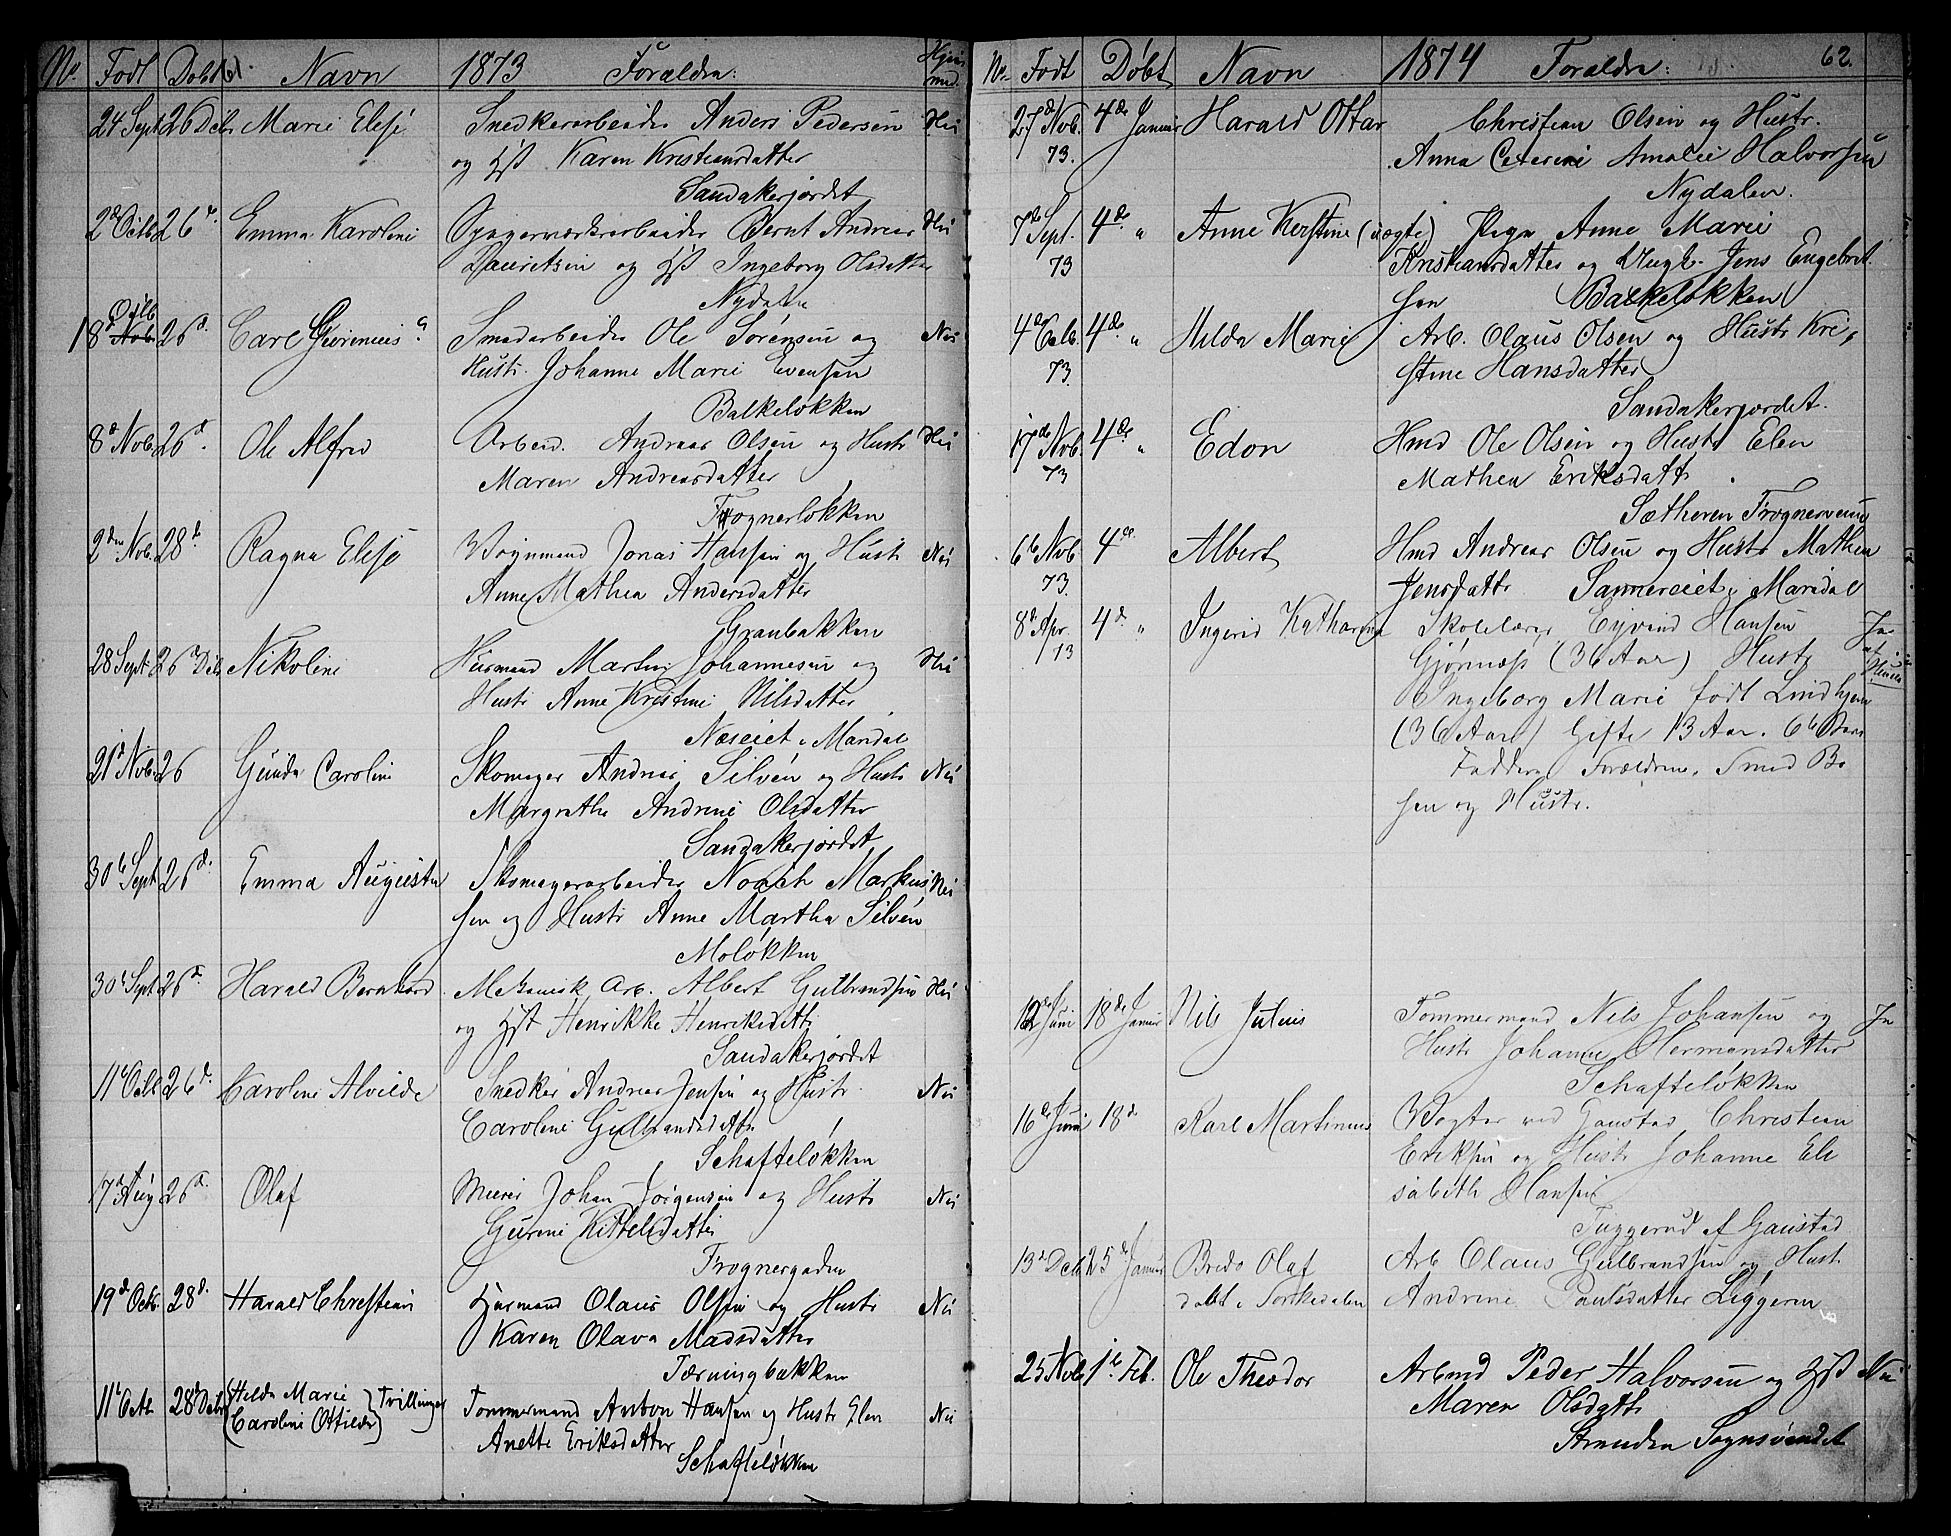 No. Født Døbt Navn 1873 Forældre: Hjem med.
24 Sept 26 Decbr Marie Elise Snedkerarbeider Anders Pedersen Nei
og Hst Karen Kristiansdatter
Sandakerjordet
2d Octb 26d Emma Karoline Spigerværksarbeider Bernt Andreas Nei
Lauritsen og Hst Ingeborg Olsdatter
Nydalen
Octb
18d Nob 26d Carl Smedarbeider Ole Sørensen og Nei
Hustr. Johanne Marie Evensen
Balkeløkken
8d Nob. 26d. Ole Alfred Arbeid. Andreas Olsen og Hustr Nei
Maren Andreasdatter
Frognerløkken
2den Nob. 28d Ragna Elise Vognmand Jonas Hansen og Hustr Nei
Anne Mathea Andersdatter
Granbakken
28 Sept 26 Decbr Nikoline Husmand Martin Johannesen og Nei
Hustr Anne Kristine Nilsdatter
Næseiet i Maridal
21d Nob. 26 Gunda Caroline Skomager Andreas Silvén og Hustr Nei
Margrethe Andrine Olsdatter
Sandakerjordet
30te Sept 26d. Emma Augusta Skomagerarbeider Noach Markus Nei
sen og Hustr Anne Martha Silvén
Moløkken
30t Sept 26d. Harald Bernhard Mekanisk Arb. Albert Gulbrandsen Nei
og Hst Henrikke Henriksdatt
Sandakerjordet
11t Octb 26d. Caroline Alvilde Snedker Andreas Jensen og Hustr. Nei
Caroline Gulbrandsdatr
Schafteløkken
17d Aug 26d. Olaf Murer Johan Jørgensen og Hustr Nei
Gurine Kittelsdatter
Frognergaden
19d Octb. 28d. Harald Christian Husmand Olaus Olsen og Hustr Nei
Karen Olava Madsdatter
Tærningbakken
11t Octb 28d Decbr Hilda Marie Caroline Ottilde } Tvillinger Tømmermand Anton Hansen og Hustr Elen Nei
Anette Eriksdatter
Schafteløkken
No. Født Døbt Navn 1874 Forældre: 62.
27d Nob. 4de Januar Harald Ottar Christian Olsen og Hustr.
73. Anna Amalie Halvorsen
Nydalen.
7de Sept. 4de " Anne Kerstine (uægte) Pige Anne Marie
73 Kristiansdatter og Ungk. Jens Engebret
sen Balkeløkken
4d Octb. 4de " Hilda Marie Arb. Olaus Olsen og Hustr Kri-
73. stine Hansdatter
Sandakerjordet.
17de Nob. 4de " Edon Hmd Ole Olsen og Hustr Elen
73 Mathea Eriksdatt
Sætheren Frognerseun
6te Nob. 4de Albert Hmd Andreas Olsen og Hustr Mathea
73. Jensdattr Sannereiet i Maridal
8d Apr. 4d. " Ingerid Katharina Skolelærer Eyvind Hansen Ja
73 Gjørnæss (36 Aar) Hustr
Ingeborg Marie født Lindhjem
(36 Aar) Gifte 13 Aar. 6te Barn
Faddere Forældrene, Smed Bo
sen og Hustr.
12te Juni 18de Januar Nils Julius Tømmermand Nils Johansen og Ja
Hustr Johanne Hermansdatter
Schafteløkken
16de Juni 18d Karl Martinius Vogter ved Gaustad Christian
Eriksen og Hustr Johanne Eli
sabeth Hansen
Tuggerud af Gaustad
13d Dcb 25d Januar Bredo Olaf Arb Olaus Gulbrandsen og Hustr
døbt i Sørkedalen Andrine Paulsdatter Liggeren
25 Nob 1te Feb. Ole Theodor Arbmd Peder Halvorsen og Hst Nei
Maren Olsdatt
Stranden Sognsvandet